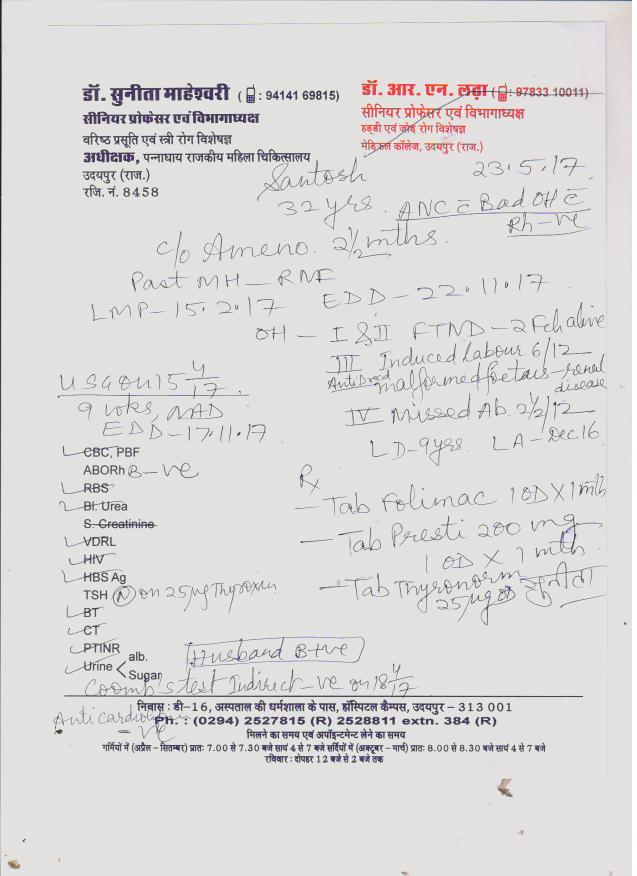 डॉ. सुनीता माहेश्वरी ( : 94141 69815)
सीनियर प्रोफेसर एवं विभागाध्यक्ष
वरिष्ठ प्रसूति एवं स्त्री रोग विशेषज्ञ
अधीक्षक, पन्नाधाय राजकीय महिला चिकित्सालय
उदयपुर (राज.)
रजि. नं. 8458
डॉ. आर. एन. लढ़ा ( : 97833 10011)
सीनियर प्रोफेसर एवं विभागाध्यक्ष
हड्डी एवं जोड़ रोग विशेषज्ञ
मेडिकल कॉलेज, उदयपुर (राज.)
Santosh 23.5.17
32 yrs. ANC c̄ Bad OH c̄
Rh-ve
c/o Ameno. 2½ mths.
Past MH - RNF
LMP - 15.2.17 EDD - 22.11.17
OH - I & II FTND - 2 Fch alive
III Induced Labour 6/12
malformed foetus - renal
disease
IV Missed Ab. 2½/12
LD - 9 yrs. LA - Dec 16
USG on 15 4/17
9 wks, NAD
EDD - 17.11.17
CBC, PBF
ABORh B-ve
RBS
Bl. Urea
S. Creatinine
VDRL
HIV
HBS Ag
TSH (N) on 25 µg Thyroxin
BT
CT
PTINR
Urine < alb.
Sugar
Rx
- Tab Folimac 1 OD X 1 mth
- Tab Presti 200 mg
1 OD X 1 mth
- Tab Thyronorm
25 µg OD सुनीता
Husband B+ve
Coomb's test Indirect -ve on 18 4/17
Anticardiolipin
-ve
निवास : डी-16, अस्पताल की धर्मशाला के पास, हॉस्पिटल कैम्पस, उदयपुर - 313 001
Ph. : (0294) 2527815 (R) 2528811 extn. 384 (R)
मिलने का समय एवं अपॉइन्टमेन्ट लेने का समय
गर्मियों में (अप्रैल - सितम्बर) प्रातः 7.00 से 7.30 बजे सायं 4 से 7 बजे सर्दियों में (अक्टूबर - मार्च) प्रातः 8.00 से 8.30 बजे सायं 4 से 7 बजे
रविवार : दोपहर 12 बजे से 2 बजे तक